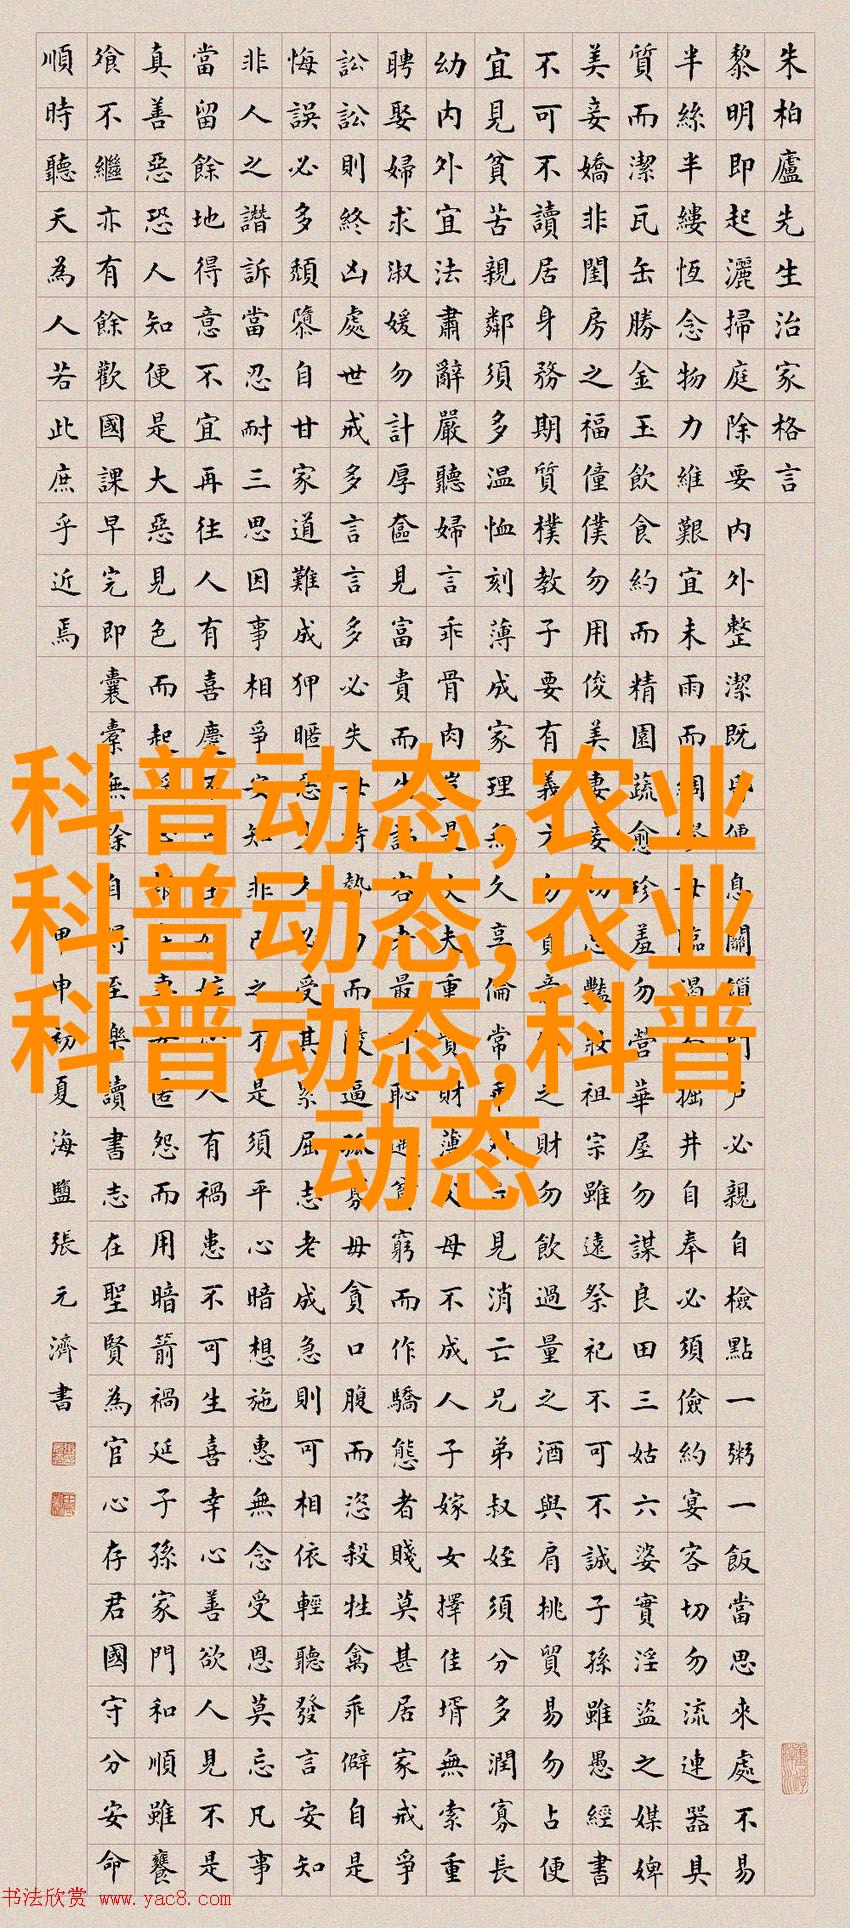 朱柏廬先生治家格言
黎明即起灑掃庭除要內外整潔既昏便息關鎖門戶必親自檢點一粥一飯當思來處不易
半絲半縷恆念物力維艱宜未雨而綢繆毋臨渴而掘井自奉必須儉約宴客切勿流連器具
質而潔瓦缶勝金玉飲食約而精園蔬愈珍羞勿營華屋勿謀良田三姑六婆實淫盜之媒婢
美妾嬌非閨房之福僮僕勿用俊美妻妾切忌豔妝祖宗雖遠祭祀不可不誠子孫雖愚經書
不可不讀居身務期質樸教子要有義方勿貪意外之財勿飲過量之酒與肩挑貿易勿占便
宜見貧苦親鄰須多溫恤刻薄成家理無久享倫常乖舛立見消亡兄弟叔姪須分多潤寡長
幼內外宜法肅辭嚴聽婦言乖骨肉豈是丈夫重貲財薄父母不成人子嫁女擇佳壻無索重
聘娶婦求淑媛勿計厚奩見富貴而生諂容者最可恥遇貧窮而作驕態者賤莫甚居家戒爭
訟訟則終凶處世戒多言言多必失毋恃勢力而凌逼孤寡毋貪口腹而恣殺牲禽乖僻自是
悔誤必多頹隳自甘家道難成狎暱惡少久必受其累屈志老成急則可相依輕聽發言安知
非人之譖訴當忍耐三思因事相爭安知非己之不是須平心暗想施惠無念受恩莫忘凡事
當留餘地得意不宜再往人有喜慶不可生妒忌心人有禍患不可生喜幸心善欲人見不是
真善惡恐人知便是大惡見色而起淫心報在妻女匿怨而用暗箭禍延子孫家門和順雖饔
飧不繼亦有餘歡國課早完即囊橐無餘自得至樂讀書志在聖賢為官心存君國守分安命
順時聽天為人若此庶乎近焉
甲申初夏海鹽張元濟書
科普动态,农业
科普动态,农业
科普动态,科普
动态
书法欣赏 www.yac8.com